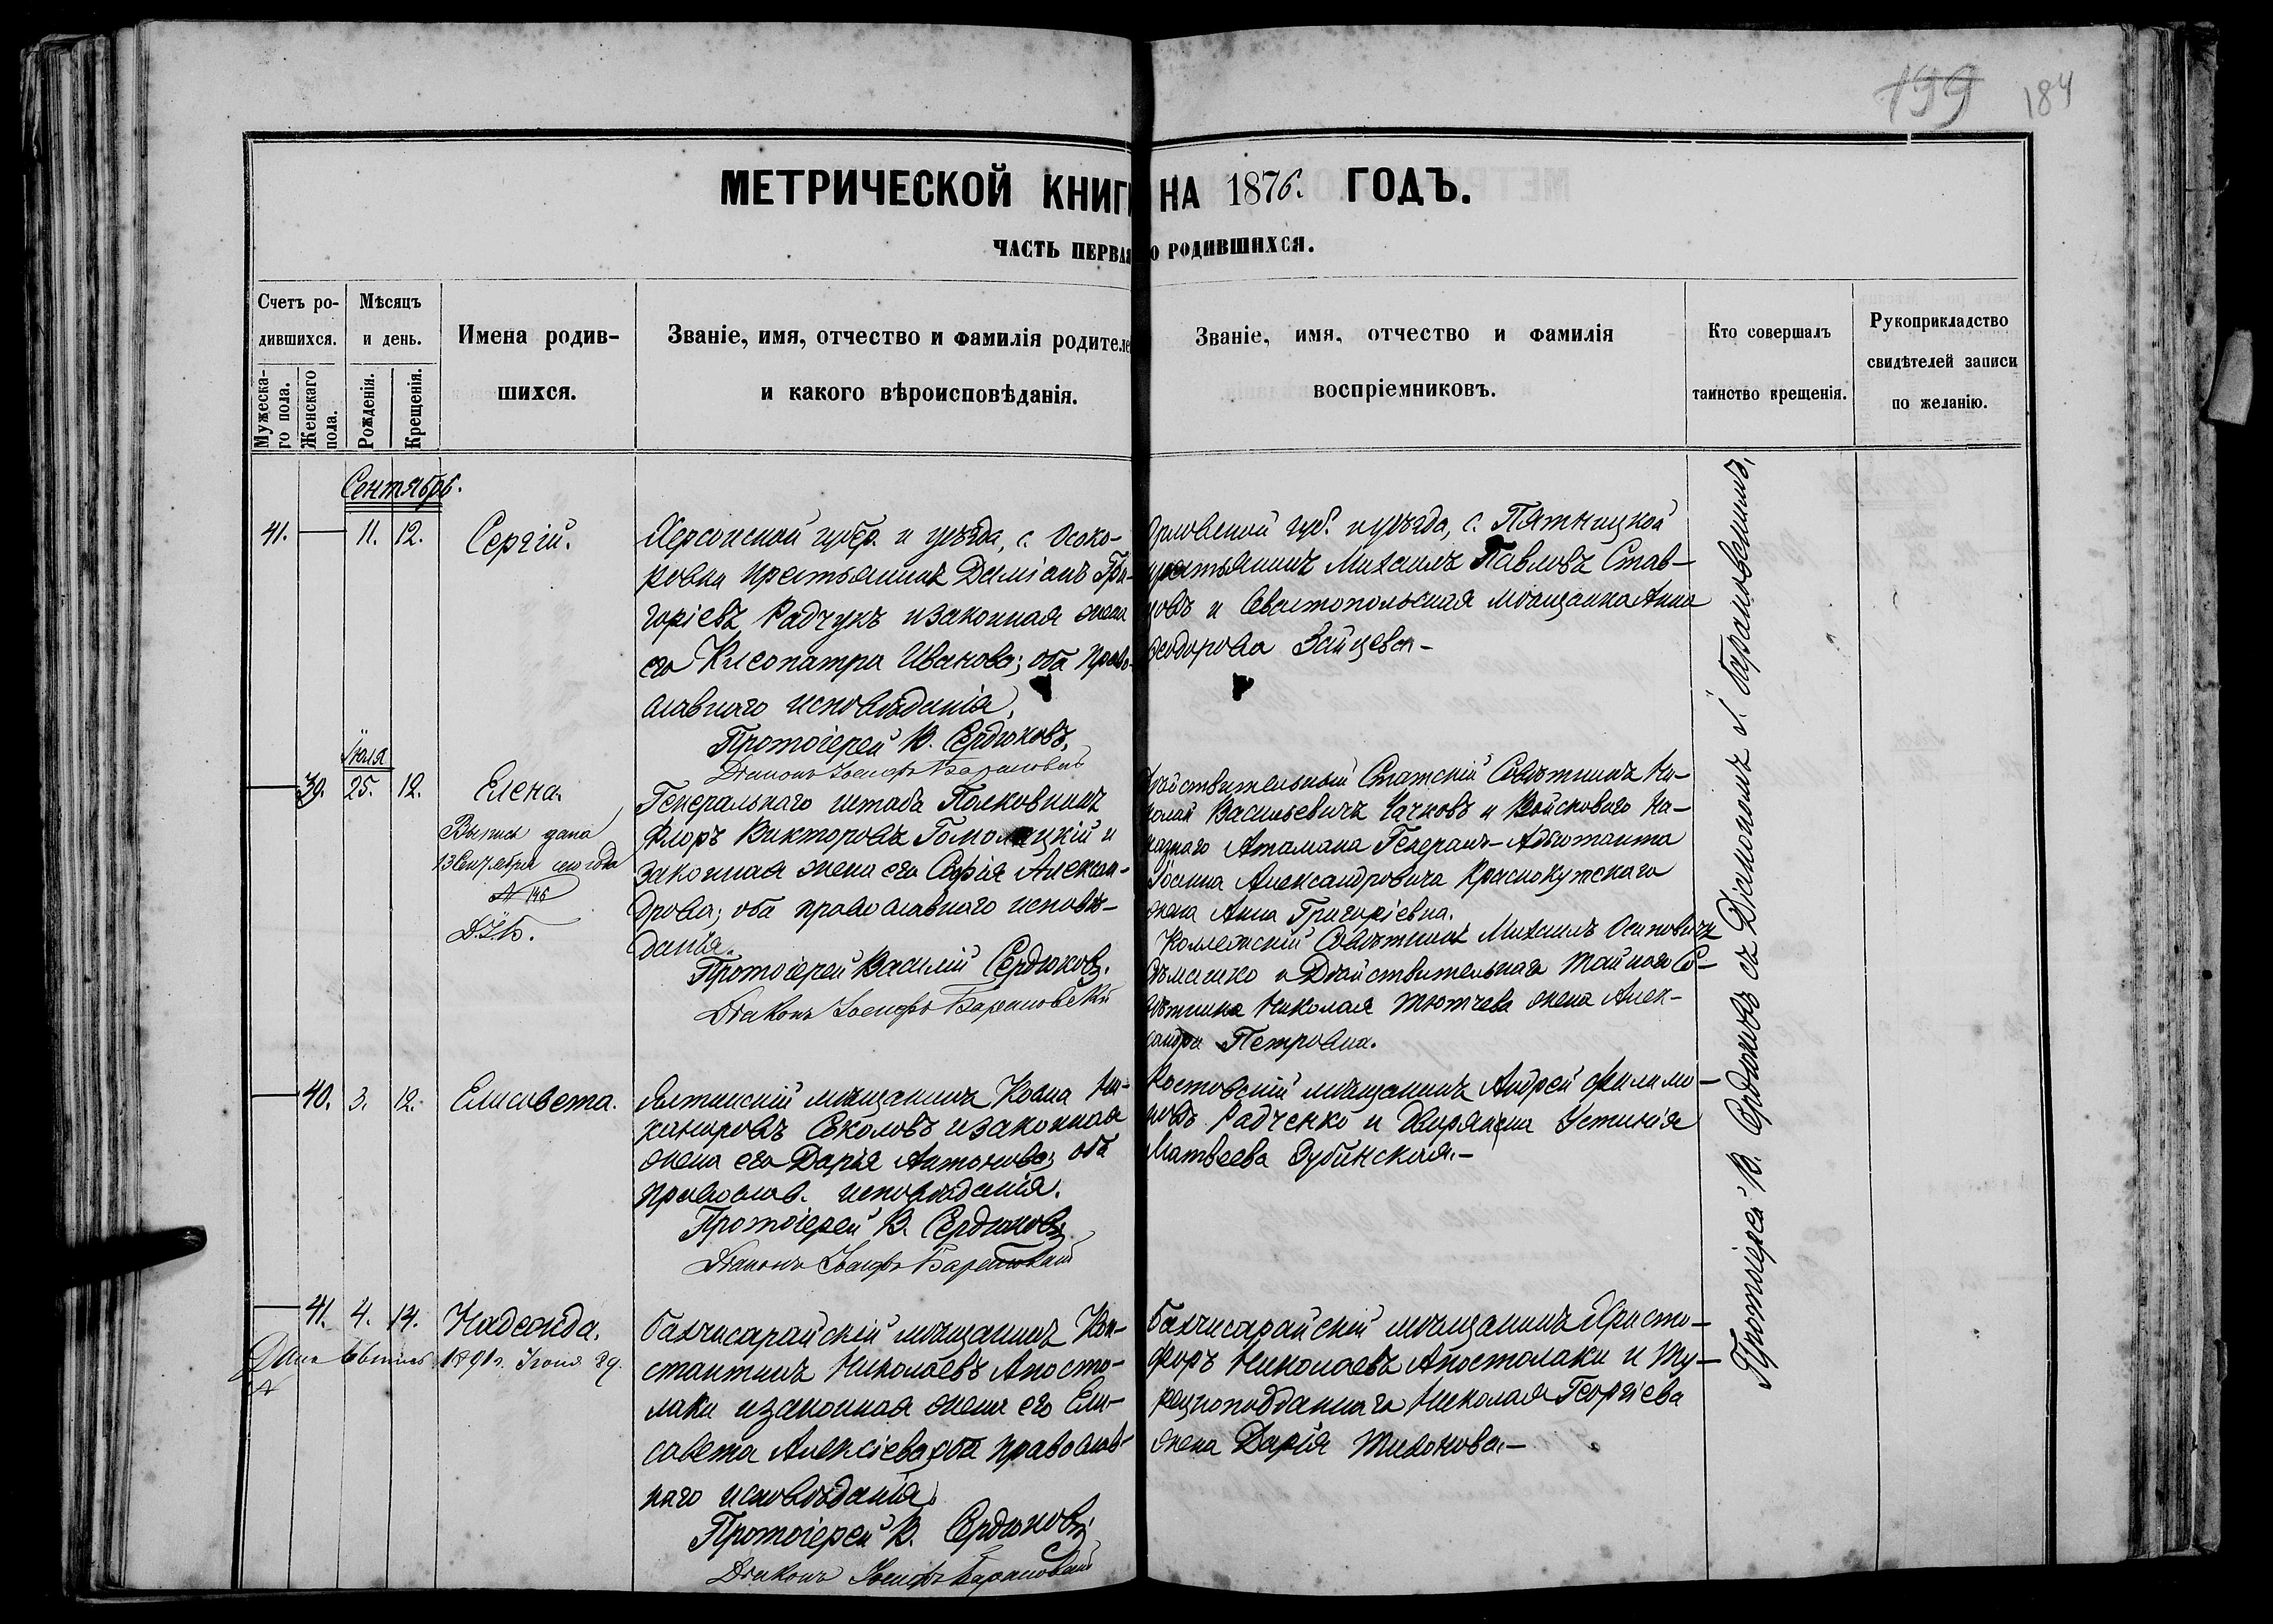 199 184
МЕТРИЧЕСКОЙ КНИГ НА 1876. ГОДЪ.
ЧАСТЬ ПЕРВАЯ О РОДИВШИХСЯ.
Счетъ ро-
дившихся.
Мужеска-
го пола.
Женскаго
пола.
Мѣсяцъ
и день.
Рожденія.
Крещенія.
Имена родив-
шихся.
Званіе, имя, отчество и фамилія родителе
и какого вѣроисповѣданія.
Званіе, имя, отчество и фамилія
воспріемниковъ.
Кто совершалъ
таинство крещенія.
Рукоприкладство
свидѣтелей записи
по желанію.
Сентябрь.
41. 11. 12. Сергій.
Херсонской губер. и уѣзда, с. Осоко-
ровки крестьянинъ Даміанъ Гри-
горіевъ Радчукъ и законная жена
его Клеопатра Иванова; оба право-
славнаго исповѣданія.
Протоіерей В. Сердюковъ.
Діаконъ Іосифъ Барановскій
Орловской губ. и уѣзда, с. Пятницкой
крестьянинъ Михаилъ Павловъ Став-
цовъ и Севастопольская мѣщанка Анна
Ѳеодорова Зайцева.-
Іюля
39. 25. 12. Елена.
Выпись дана
13 Сентября сего года
№ 146
Д.І.Б.
Генеральнаго штаба Полковникъ
Флоръ Викторовъ Гомолицкій и
законная жена его Софія Алексан-
дрова; оба православнаго исповѣ-
данія.
Протоіерей Василій Сердюковъ.
Діаконъ Іосифъ Барановскій
Дѣйствительный Статскій Совѣтникъ Ни-
колай Васильевичъ Чачковъ и Войсковаго На-
казнаго Атамана Генералъ-Адъютанта
Іоанна Александровича Краснокутскаго
жена Анна Григоріевна.
Коллежскій Совѣтникъ Михаилъ Осиповичъ
и Дѣйствительнаго тайнаго Со-
вѣтника Николая Тютчева жена Алек-
сандра Петровна.
40. 3. 12. Елисавета.
Ялтинскій мѣщанинъ Іоана Ни-
каноровъ Соколовъ и законная
жена его Дарія Антонова; оба
православ. исповѣданія.
Протоіерей В. Сердюковъ
Діаконъ Іосифъ Барановскій
Ростовскій мѣщанинъ Андрей Филимо-
новъ Радченко и Дворянка Устинія
Матвеева Дубинская.-
41. 4. 14. Надежда.
Дана 1891 г. Іюня 29.
№
Бахчисарайскій мѣщанинъ Кон-
стантинъ Николаевъ Апосто-
лаки и законная жена его Ели-
савета Алексіева; оба православ-
наго исповѣданія.
Протоіерей В. Сердюковъ
Діаконъ Іосифъ Барановскій
Бахчисарайскій мѣщанинъ Христо-
форъ Николаевъ Апостолаки и Ту-
рецкоподданнаго Николая Георгіева
жена Дарія Тихонова.-
Протоіерей В. Сердюковъ съ Діакономъ І. Барановскимъ.